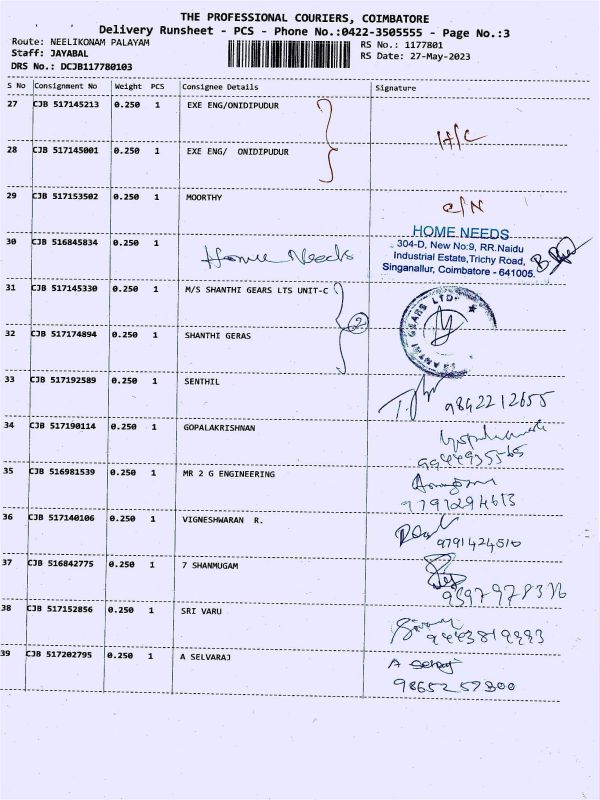 THE PROFESSIONAL COURIERS, COIMBATORE
Delivery Runsheet - PCS - Phone No.:0422-3505555 - Page No.:3
Route: NEELIKONAM PALAYAM
RS No.: 1177801
Staff: JAYABAL
RS Date: 27-May-2023
DRS No.: DCJB117780103
S No Consignment No Weight PCS Consignee Details Signature
27 CJB 517145213 0.250 1 EXE ENG/ONIDIPUDUR
H/C
28 CJB 517145001 0.250 1 EXE ENG/ ONIDIPUDUR
29 CJB 517153502 0.250 1 MOORTHY C/N
HOME NEEDS
30 CJB 516845834 0.250 1 Home Needs
304-D, New No:9, RR.Naidu
Industrial Estate,Trichy Road,
Singanallur, Coimbatore - 641005.
31 CJB 517145330 0.250 1 M/S SHANTHI GEARS LTS UNIT-C
2
SHANTHI GEARS LTD
32 CJB 517174894 0.250 1 SHANTHI GERAS
33 CJB 517192589 0.250 1 SENTHIL
9842212655
34 CJB 517190114 0.250 1 GOPALAKRISHNAN
35 CJB 516981539 0.250 1 MR 2 G ENGINEERING
9791294613
36 CJB 517140106 0.250 1 VIGNESHWARAN R.
9791424510
37 CJB 516842775 0.250 1 7 SHANMUGAM
38 CJB 517152856 0.250 1 SRI VARU
39 CJB 517202795 0.250 1 A SELVARAJ
9865257800